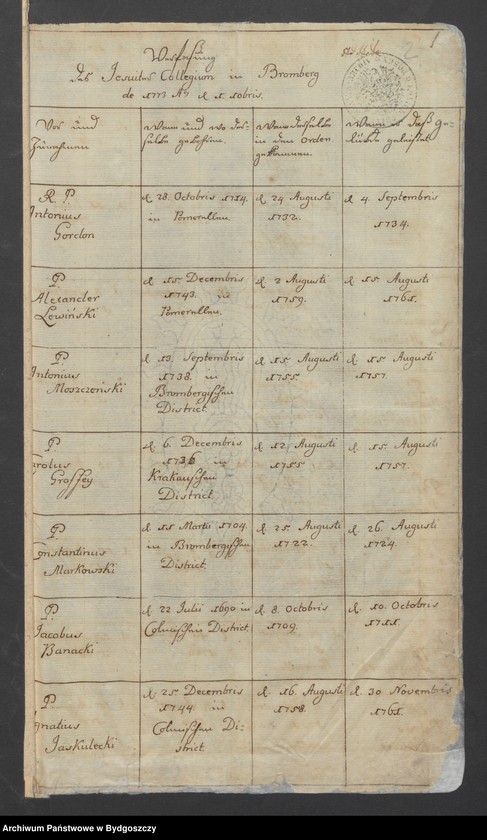 des Jesuiten Collegium in Bromberg
de 1773 d. 1. 8obris.
2
1
Vor und
Zunahmen
Wann und wo der-
selbe gebohren.
Wann derselbe
in den Orden
gekommen.
Wann er daß Ge-
lübde geleistet
R. P.
Antonius
Gordon
d. 28. Octobris 1714.
in Pomerellen.
d. 24 Augusti
1732.
d. 4. Septembris
1734.
P.
Alexander
Lewiński
d. 15. Decembris
1743. in
Pomerellen.
d. 2 Augusti
1759.
d. 15. Augusti
1761.
P.
Antonius
Moszczeński
d. 13. Septembris
1738. in
Brombergischen
District.
d. 15. Augusti
1755.
d. 15 Augusti
1757.
P.
Carolus
d. 6. Decembris
1736 in
Krakauschen
District
d. 12. Augusti
1755
d. 15. Augusti
1757.
P.
Constantinus
Markowski
d. 11 Martii 1704.
in Brombergischen
District
d. 25. Augusti
1722.
d. 26. Augusti
1724.
P.
Jacobus
Banacki
d. 22 Julii 1690 in
Culmischen District.
d. 8. Octobris
1709.
d. 10. Octobris
1711.
P.
Ignatius
Jaskulecki
d. 25 Decembris
1744. in
Culmischen Di-
strict.
d. 16. Augusti
1758.
d. 30 Novembris
1761.
Archiwum Państwowe w Bydgoszczy